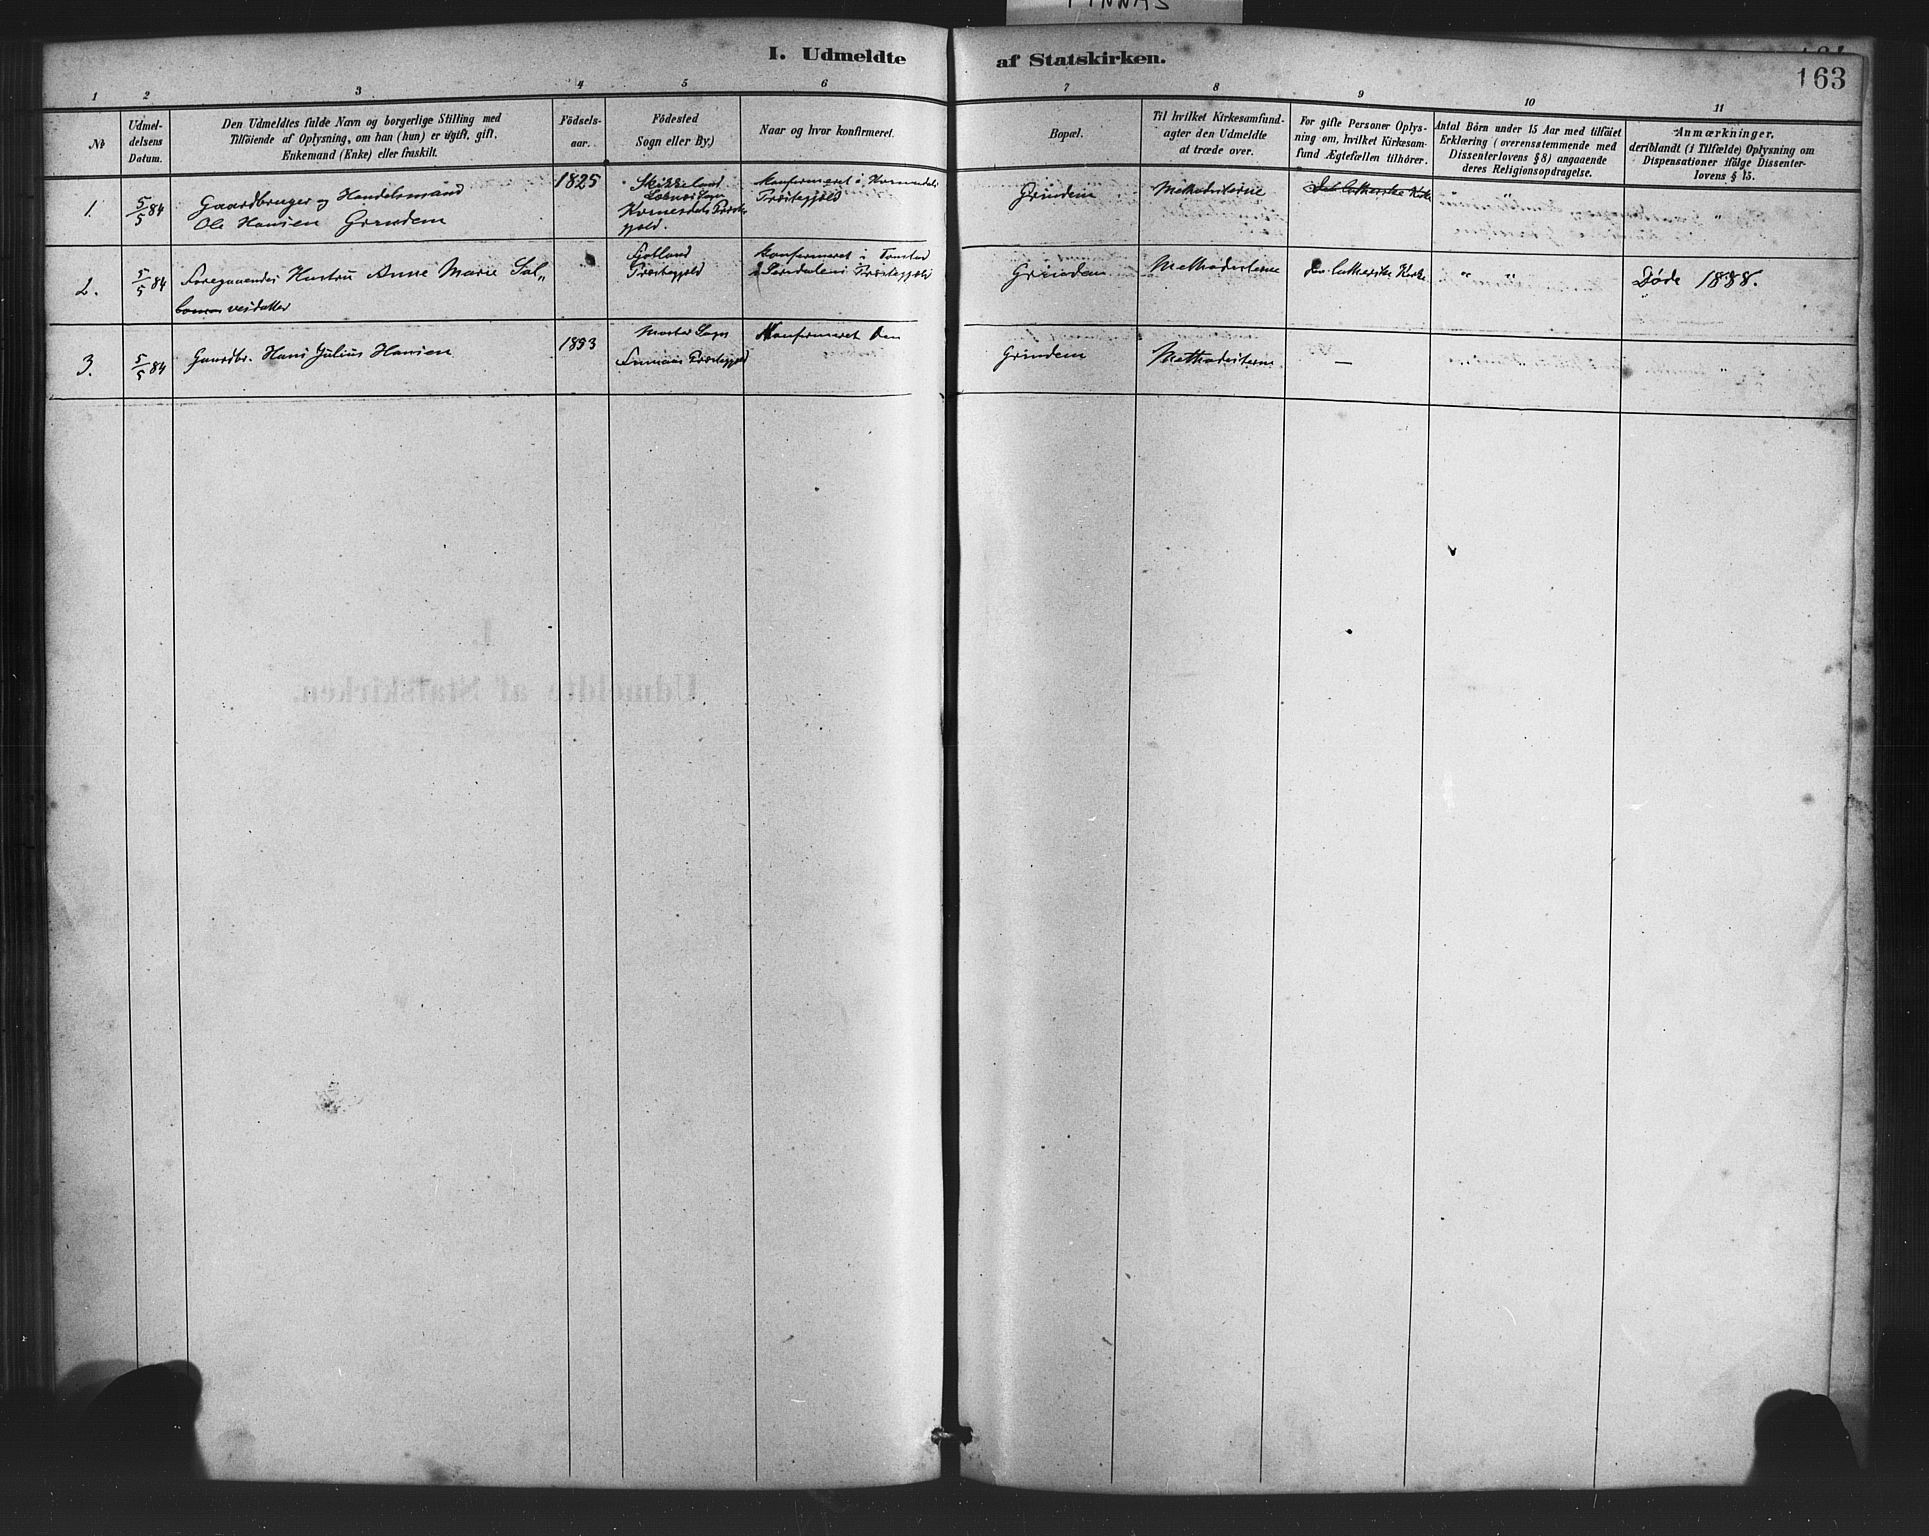 FINNÅS
I. Udmeldte af Statskirken.
163
1 2 3 4 5 6 7 8 9 10 11
No
Udmel-
delsens
Datum.
Den Udmeldtes fulde Navn og borgerlige Stilling med
Tilföiende af Oplysning, om han (hun) er ugift, gift,
Enkemand (Enke) eller fraskilt.
Födsels-
aar.
Födested
Sogn eller By.)
Naar og hvor konfirmeret.
Bopæl.
Til hvilket Kirkesamfund-
agter den Udmeldte
at træde over.
For gifte Personer Oplys-
ning om, hvilket Kirkesam-
fund Ægtefællen tilhörer.
Antal Börn under 15 Aar med tilföiet
Erklæring (overensstemmende med
Dissenterlovens § 8) angaaende
deres Religionsopdragelse.
Anmærkninger,
deriblandt (i Tilfælde) Oplysning om
Dispensationer ifölge Dissenter-
lovens § 15.
1.
5/5 84
Gaardbruger og Handelsmand
Ole Hansen Grindem
1825
Prœste
gjeld.
Konfirmeret i
Prœstegjeld
Grindem
Methodisterne
Den lutherske Kirke
"
2.
5/5 84
Foregaaendes Hustru Anne Marie Sal„
vesdatter
Fjotland
Prœstegjeld
Konfirmeret i Tonstad
Prœstegjeld
Grindem
Methodisterne
Den lutherske Kirke
" "
Døde 1888.
3.
5/5 84
Gaardbr. Hans Julius Hansen
Moster Sogn
Finnaas Prœstegjeld
Konfirmeret
Grindem
Methodisterne
—
" "
"